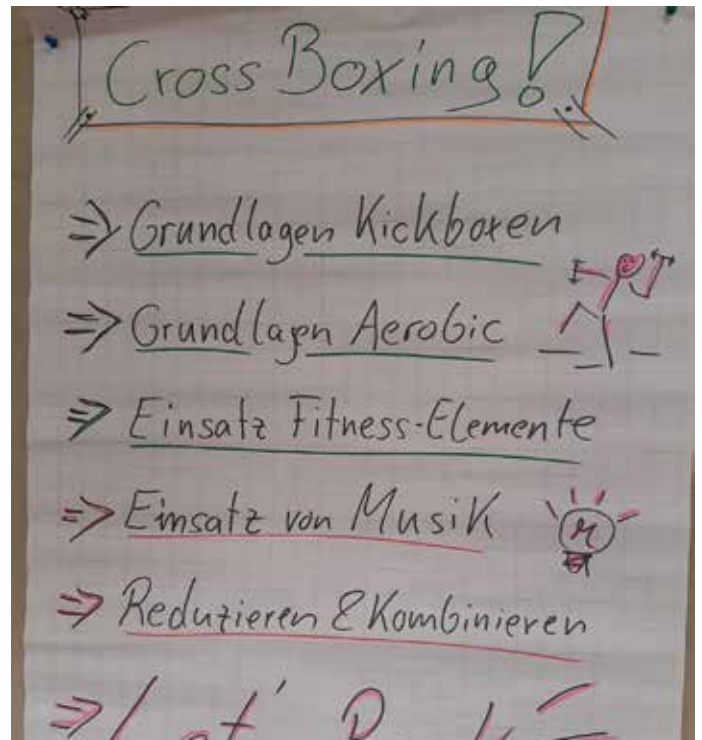 Cross Boxing!
⇒ Grundlagen Kickboxen
⇒ Grundlagen Aerobic
⇒ Einsatz Fitness-Elemente
⇒ Einsatz von Musik
⇒ Reduzieren & Kombinieren
⇒ Let's